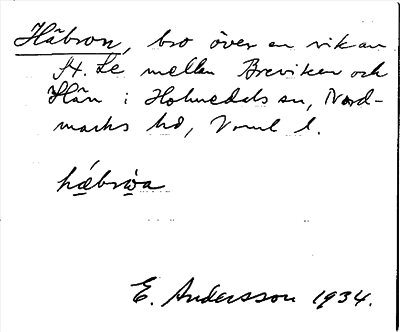 Håbron, bro över en vik av
St. Le mellan Breviken och
Hån i Holmedals sn, Nord-
marks hd, Vrml l.
hábrωa
E. Andersson 1934.